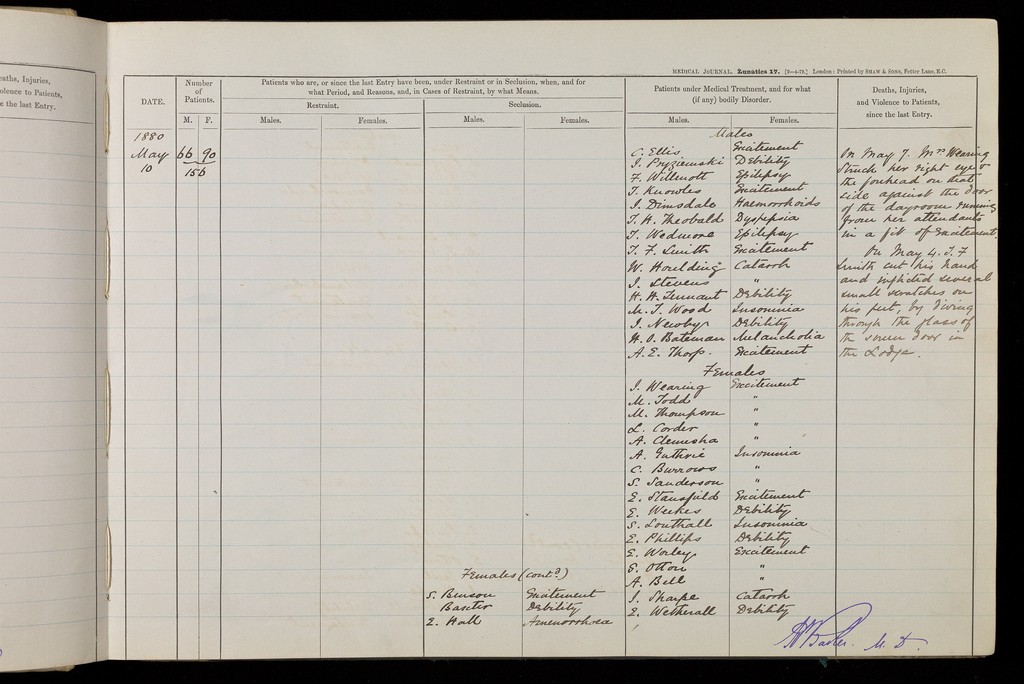 eaths, Injuries,
iolence to Patients,
e the last Entry.
MEDICAL JOURNAL. Lunatics 17. [9—4-79.] London: Printed by SHAW & SONS, Fetter Lane, E.C.
DATE.
Number
of
Patients.
M. F.
Patients who are, or since the last Entry have been, under Restraint or in Seclusion, when, and for
what Period, and Reasons, and, in Cases of Restraint, by what Means.
Restraint. Seclusion.
Males. Females. Males. Females.
Patients under Medical Treatment, and for what
(if any) bodily Disorder.
Males. Females.
Deaths, Injuries,
and Violence to Patients,
since the last Entry.
1880
May
10
66 90
156
Males
C. Ellis Excitement
I. Pryziemski Debility
F. Willmott Epilepsy
T. Knowles Excitement
J. Dimsdale Haemorrhoids
T. H. Theobald Dyspepsia
T. Wedmore Epilepsy
T. F. Smith Excitement
W. Houlding Catarrh
J. Stevens "
H. H. Tennant Debility
M. T. Wood Insomnia
J. Newby Debility
H. O. Bateman Melancholia
A. E. Thorp. Excitement
Females
J. Wearing Excitement
M. Todd "
M. Thompson "
L. Corder "
A. Clemesha "
A. Guthrie Insomnia
C. Burrows "
S. Sanderson "
E. Stansfield Excitement
E. Weekes Debility
S. Southall Insomnia
E. Phillips Debility
E. Worley Excitement
E. Otton "
A. Bell "
J. Sharpe Catarrh
E. Wetherall Debility
Females (contd)
S. Benson Excitement
Baxter Debility
E. Hall Amenorrhoea
On May 7. Mrs Wearing
struck her right eye &
the forehead on that
side against the door
of the dayroom running
from her attendants
in a fit of excitement.
On May 4. T. F
Smith cut his hand
and inflicted several
small scratches on
his feet, by diving
through the glass of
the screen door in
the Lodge.
Baker. M. D.